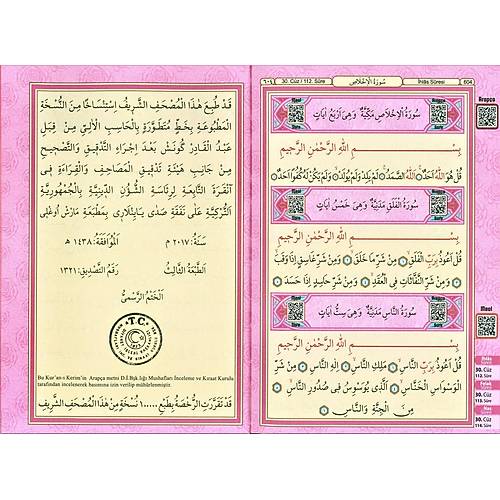 ٦٠٩
30. Cüz / 112. Sûre
سُورَةُ الْاِخْلَاصِ
İhlâs Sûresi
604
Meal
Arapça
سُورَةُ الْاِخْلَاصِ مَكِّيَّةٌ وَهِىَ اَرْبَعُ اٰيَاتٍ
بِسْمِ اللّٰهِ الرَّحْمٰنِ الرَّحٖيمِ
قُلْ هُوَ اللّٰهُ اَحَدٌ اَللّٰهُ الصَّمَدُ لَمْ يَلِدْ وَلَمْ يُولَدْ وَلَمْ يَكُنْ لَهُ كُفُوًا اَحَدٌ
سُورَةُ الْفَلَقِ مَدَنِيَّةٌ وَهِىَ خَمْسُ اٰيَاتٍ
بِسْمِ اللّٰهِ الرَّحْمٰنِ الرَّحٖيمِ
قُلْ اَعُوذُ بِرَبِّ الْفَلَقِ مِنْ شَرِّ مَا خَلَقَ وَمِنْ شَرِّ غَاسِقٍ اِذَا وَقَبَ
وَمِنْ شَرِّ النَّفَّاثَاتِ فِى الْعُقَدِ وَمِنْ شَرِّ حَاسِدٍ اِذَا حَسَدَ
سُورَةُ النَّاسِ مَدَنِيَّةٌ وَهِىَ سِتُّ اٰيَاتٍ
بِسْمِ اللّٰهِ الرَّحْمٰنِ الرَّحٖيمِ
قُلْ اَعُوذُ بِرَبِّ النَّاسِ مَلِكِ النَّاسِ اِلٰهِ النَّاسِ مِنْ شَرِّ
الْوَسْوَاسِ الْخَنَّاسِ اَلَّذٖى يُوَسْوِسُ فٖى صُدُورِ النَّاسِ
مِنَ الْجِنَّةِ وَالنَّاسِ
Arapça
Meal
İhlâs
30. Cüz
112. Sûre
Felak
30. Cüz
113. Sûre
Nas
30. Cüz
114. Sûre
قَدْ طُبِعَ هٰذَا الْمُصْحَفُ الشَّرٖيفُ اِسْتِنْسَاخًا مِنَ النُّسْخَةِ
الْمَطْبُوعَةِ بِخَطٍّ مُتَطَوِّرَةٍ بِالْحَاسِبِ الْاٰلِىِّ مِنْ قِبَلِ
عَبْدُ الْقَادِرِ كُونَشْ بَعْدَ اِجْرَاءِ التَّدْقٖيقِ وَالتَّصْحٖيحِ
مِنْ جَانِبِ هَيْئَةِ تَدْقٖيقِ الْمَصَاحِفِ وَالْقِرَاءَةِ فٖى
اَنْقَرَةَ التَّابِعَةِ لِرِئَاسَةِ الشُّؤُنِ الدّٖينِيَّةِ بِالْجُمْهُورِيَّةِ
التُّرْكِيَّةِ عَلٰى نَفَقَةِ صَدٰى يَايِنْلَارِى بِمَطْبَعَةِ مَارْشْ اُوغْلِى
سَنَةُ: ٢٠١٧ م الْمُوَافَقَةُ: ١٤٣٨ هـ
الطَّبْعَةُ الثَّالِثُ رَقْمُ التَّصْدٖيقِ: ١٣٢١
اَلْخَتْمُ الرَّسْمِىُّ
T.C.
Bu Kur'an-ı Kerim'in Arapça metni D.İ.Bşk.lığı Mushafları İnceleme ve Kıraat Kurulu
tarafından incelenerek basımına izin verilip mühürlenmiştir.
قَدْ تَقَرَّرَتِ الرُّخْصَةُ بِطَبْعِ ١٠٠٠٠ نُسْخَةٍ مِنْ هٰذَا الْمُصْحَفِ الشَّرٖيفِ